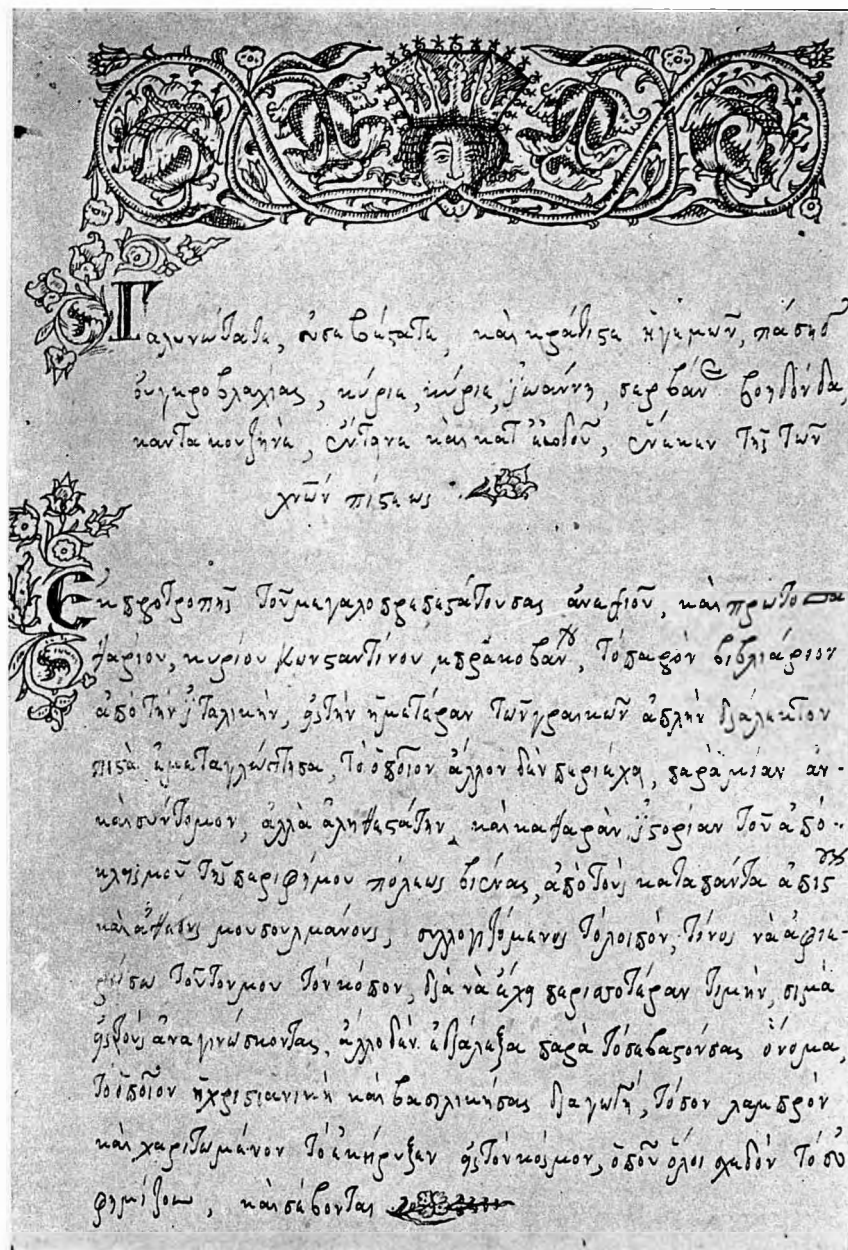 Γαληνότατε, εὐσεβέστατε, καὶ κράτιστε ἡγεμὼν, πάσης
οὐγκροβλαχίας, κύριε, κύριε, ἰωάννη, σερβὰν βοηβόνδα,
καντακουζηνὲ, καὶ κατ' ἔξοδον, ἕνεκεν τῆς τῶν
χνῶν πίστεως
Ἐκ προτροπῆς τοῦ μεγαλοπρεπεστάτου σας ἀνεψιοῦ, καὶ πρωτο
κυρίου κωνσταντίνου μπράκοβαν, τὸ παρὸν βιβλιάριον
ἀπὸ τὴν ἰταλικὴν, εἰς τὴν ἡμετέραν τῶν γραικῶν ἁπλὴν διάλεκτον
πιστὰ ἐμεταγλώττησα, τὸ ὁποῖον ἄλλον δὲν περιέχει, παρὰ μίαν ἀν-
καὶ σύντομον, ἀλλὰ ἀληθεστάτην, καὶ καθαρὰν, ἱστορίαν τοῦ ἀπο-
κλησμοῦ τῆς περιφήμου πόλεως βιένας, ἀπὸ τοὺς κατὰ πάντα ἀπίστ
καὶ ἀθέους μουσουλμάνους, συλλογιζόμενος τὸ λοιπὸν, τίνος νὰ ἀφιε-
ρώσω τοῦτον μου τὸν κόπον, διὰ νὰ ἔχη περισσοτέραν τιμὴν, σιμὰ
εἰς τοὺς ἀναγινώσκοντας, ἄλλο δὲν ἐδιάλεξα παρὰ τὸ σεβαστόν σας ὄνομα,
τὸ ὁποῖον ἡ χριστιανικὴ καὶ βασιλική σας διαγωγὴ, τόσον λαμπρὸν
καὶ χαριτωμένον τὸ ἐκήρυξεν εἰς τὸν κόσμον, ὁποῦ ὅλοι σχεδὸν τὸ εὐ
φημίζουν, καὶ σέβονται